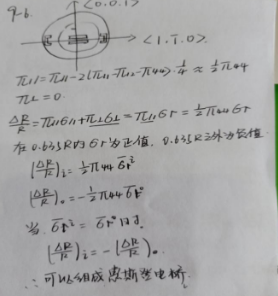 9-6.
<0.0.1>
<1.1̄.0>.
π11 = π11 - 2(π11 - π12 - π44)·1/4 ≈ 1/2 π44
π⊥ = 0.
ΔR/R = π11 σ11 + π⊥ σ⊥ = π11 σr = 1/2 π44 σr
在 0.635R内 σr为正值, 0.635R之外为负值
(ΔR/R)i = 1/2 π44 σ̄ri
(ΔR/R)o = -1/2 π44 σ̄ro
当 σ̄ri = σ̄ro 时.
(ΔR/R)i = -(ΔR/R)o
∴ 可以组成惠斯登电桥.